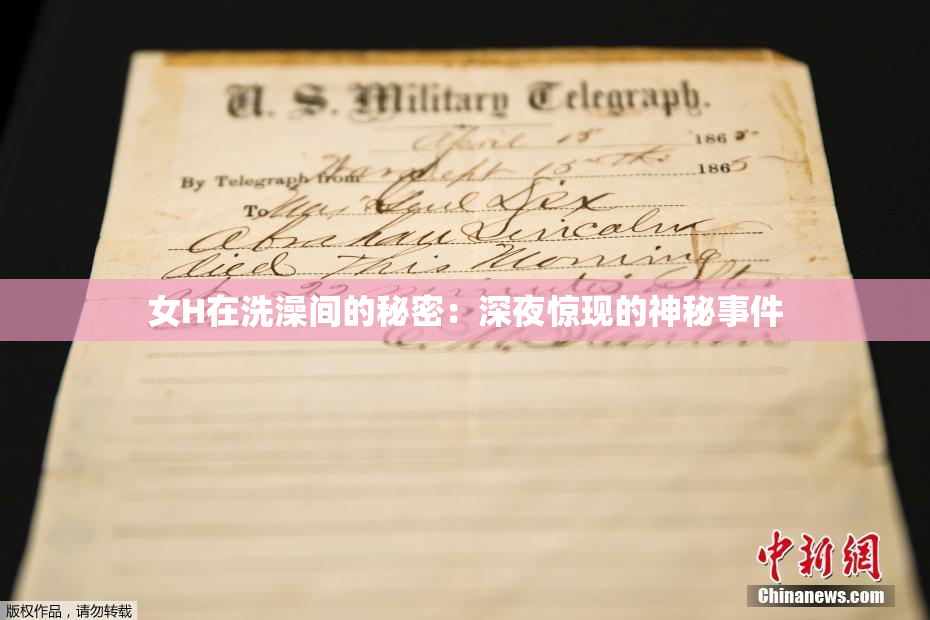 U. S. Military Telegraph.
April 15 1865
By Telegraph from War Dept 15th 1865
To Maj Genl Dix
Abraham Lincoln
died This Morning
at 22 minutes after
女H在洗澡间的秘密：深夜惊现的神秘事件
E. M. Stanton
中新网
Chinanews.com
版权作品，请勿转载